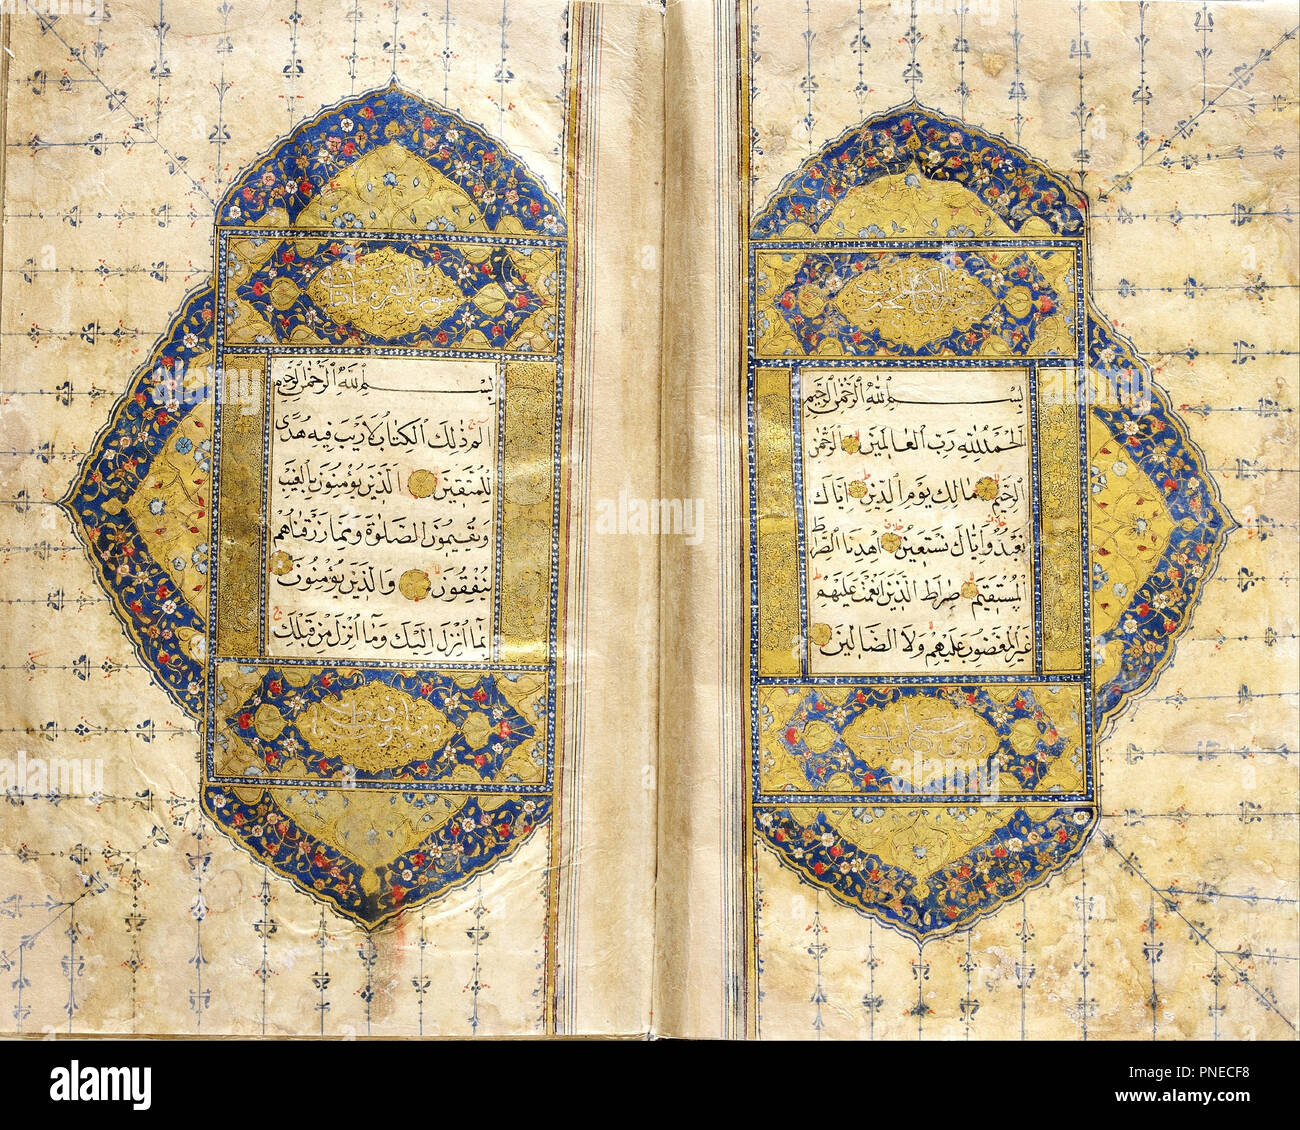 بسم الله الرحمن الرحيم
الحمد لله رب العالمين الرحمن
الرحيم مالك يوم الدين اياك
نعبد واياك نستعين اهدنا الصراط
المستقيم صراط الذين انعمت عليهم
غير المغضوب عليهم ولا الضالين
سورة البقرة مائتان
بسم الله الرحمن الرحيم
الم ذلك الكتاب لا ريب فيه هدى
للمتقين الذين يؤمنون بالغيب
ويقيمون الصلوة ومما رزقناهم
ينفقون والذين يؤمنون
بما انزل اليك وما انزل من قبلك
alamy stock photo
PNECF8
www.alamy.com